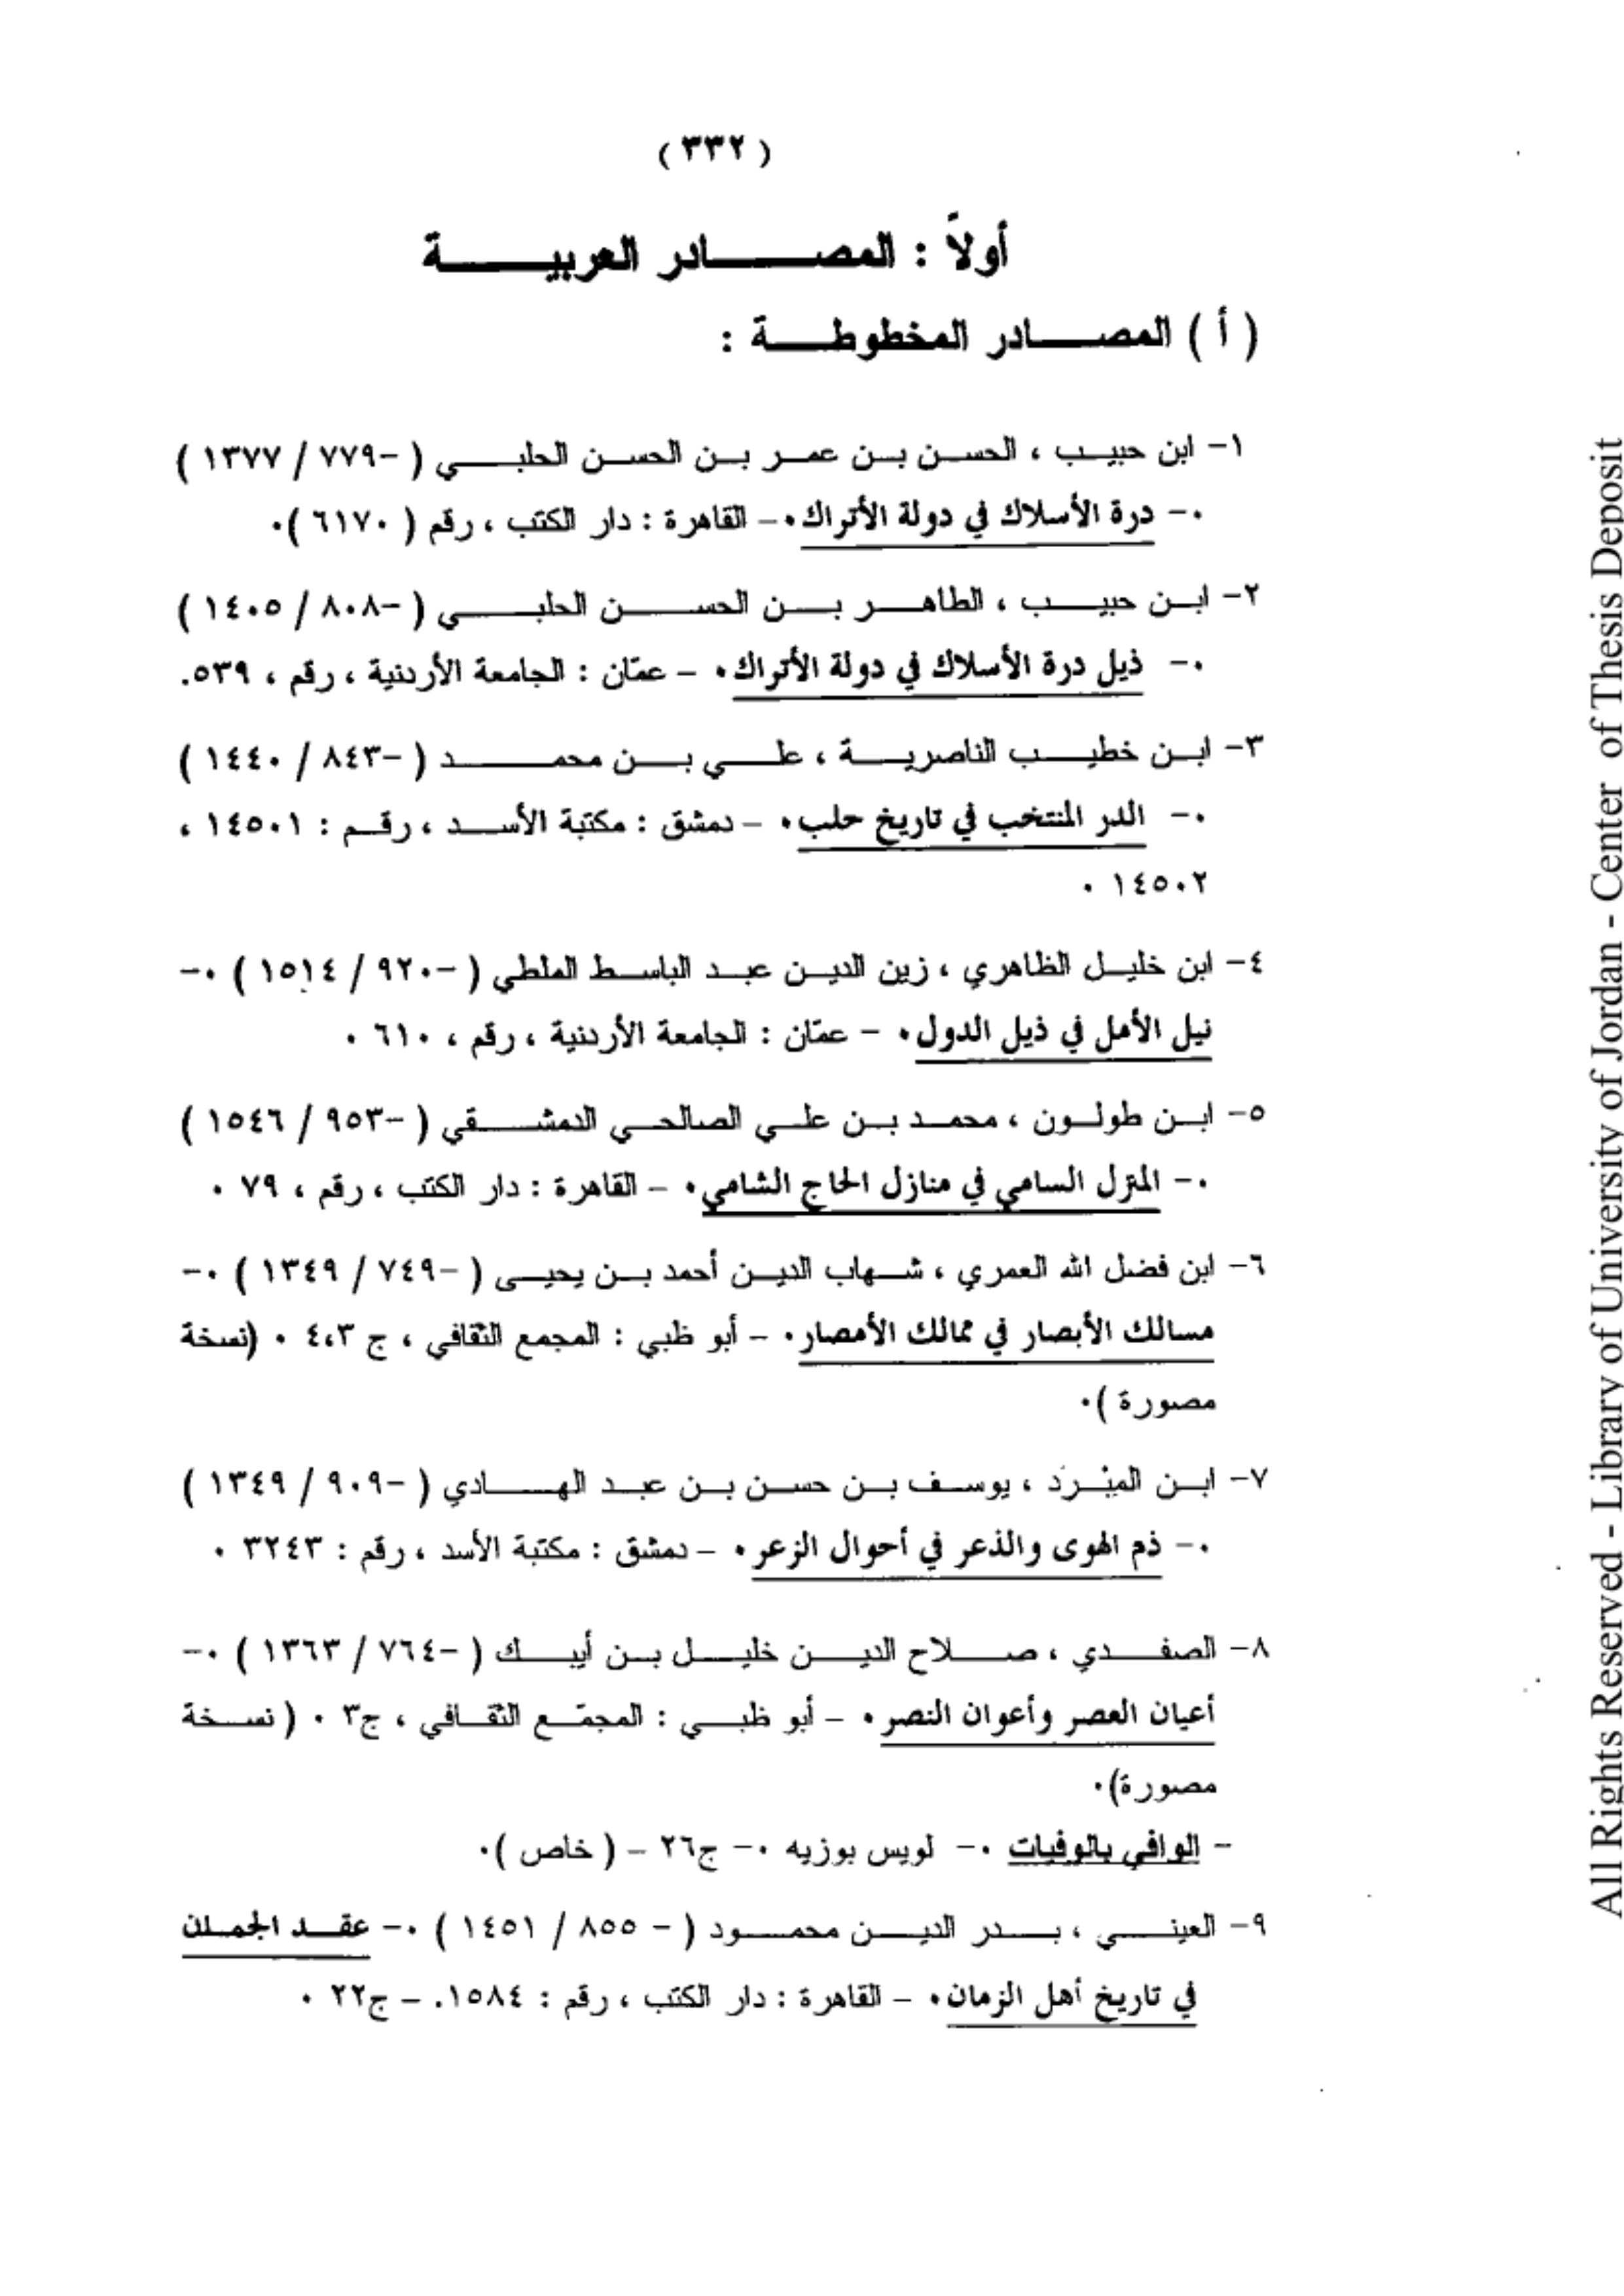 (٣٣٢)
أولاً : المصادر العربية
( أ ) المصادر المخطوطة :
١- ابن حبيب ، الحسن بن عمر بن الحسن الحلبي ( -٧٧٩ / ١٣٧٧ )
٠- درة الأسلاك في دولة الأتراك٠- القاهرة : دار الكتب ، رقم ( ٦١٧٠ )٠
٢- ابن حبيب ، الطاهر بن الحسن الحلبي ( -٨٠٨ / ١٤٠٥ )
٠- ذيل درة الأسلاك في دولة الأتراك٠ - عمّان : الجامعة الأردنية ، رقم ، ٥٣٩.
٣- ابن خطيب الناصرية ، علي بن محمد ( -٨٤٣ / ١٤٤٠ )
٠- الدر المنتخب في تاريخ حلب٠ - دمشق : مكتبة الأسد ، رقم : ١٤٥٠١ ،
١٤٥٠٢ ٠
٤- ابن خليل الظاهري ، زين الدين عبد الباسط الملطي ( -٩٢٠ / ١٥١٤ ) ٠-
نيل الأمل في ذيل الدول٠ - عمّان : الجامعة الأردنية ، رقم ، ٦١٠ ٠
٥- ابن طولون ، محمد بن علي الصالحي الدمشقي ( -٩٥٣ / ١٥٤٦ )
٠- المنزل السامي في منازل الحاج الشامي٠ - القاهرة : دار الكتب ، رقم ، ٧٩ ٠
٦- ابن فضل الله العمري ، شهاب الدين أحمد بن يحيى ( -٧٤٩ / ١٣٤٩ ) ٠-
مسالك الأبصار في ممالك الأمصار٠ - أبو ظبي : المجمع الثقافي ، ج ٤،٣ ٠ (نسخة
مصورة )٠
٧- ابن المِبْرَد ، يوسف بن حسن بن عبد الهادي ( -٩٠٩ / ١٣٤٩ )
٠- ذم الهوى والذعر في أحوال الزعر٠ - دمشق : مكتبة الأسد ، رقم : ٣٢٤٣ ٠
٨- الصفدي ، صلاح الدين خليل بن أيبك ( -٧٦٤ / ١٣٦٣ ) ٠-
أعيان العصر وأعوان النصر٠ - أبو ظبي : المجمّع الثقافي ، ج٣ ٠ ( نسخة
مصورة)٠
- الوافي بالوفيات ٠- لويس بوزيه ٠- ج٢٦ - ( خاص )٠
٩- العيني ، بدر الدين محمود ( - ٨٥٥ / ١٤٥١ ) ٠- عقد الجملن
في تاريخ أهل الزمان٠ - القاهرة : دار الكتب ، رقم : ١٥٨٤. - ج٢٢ ٠
All Rights Reserved - Library of University of Jordan - Center of Thesis Deposit